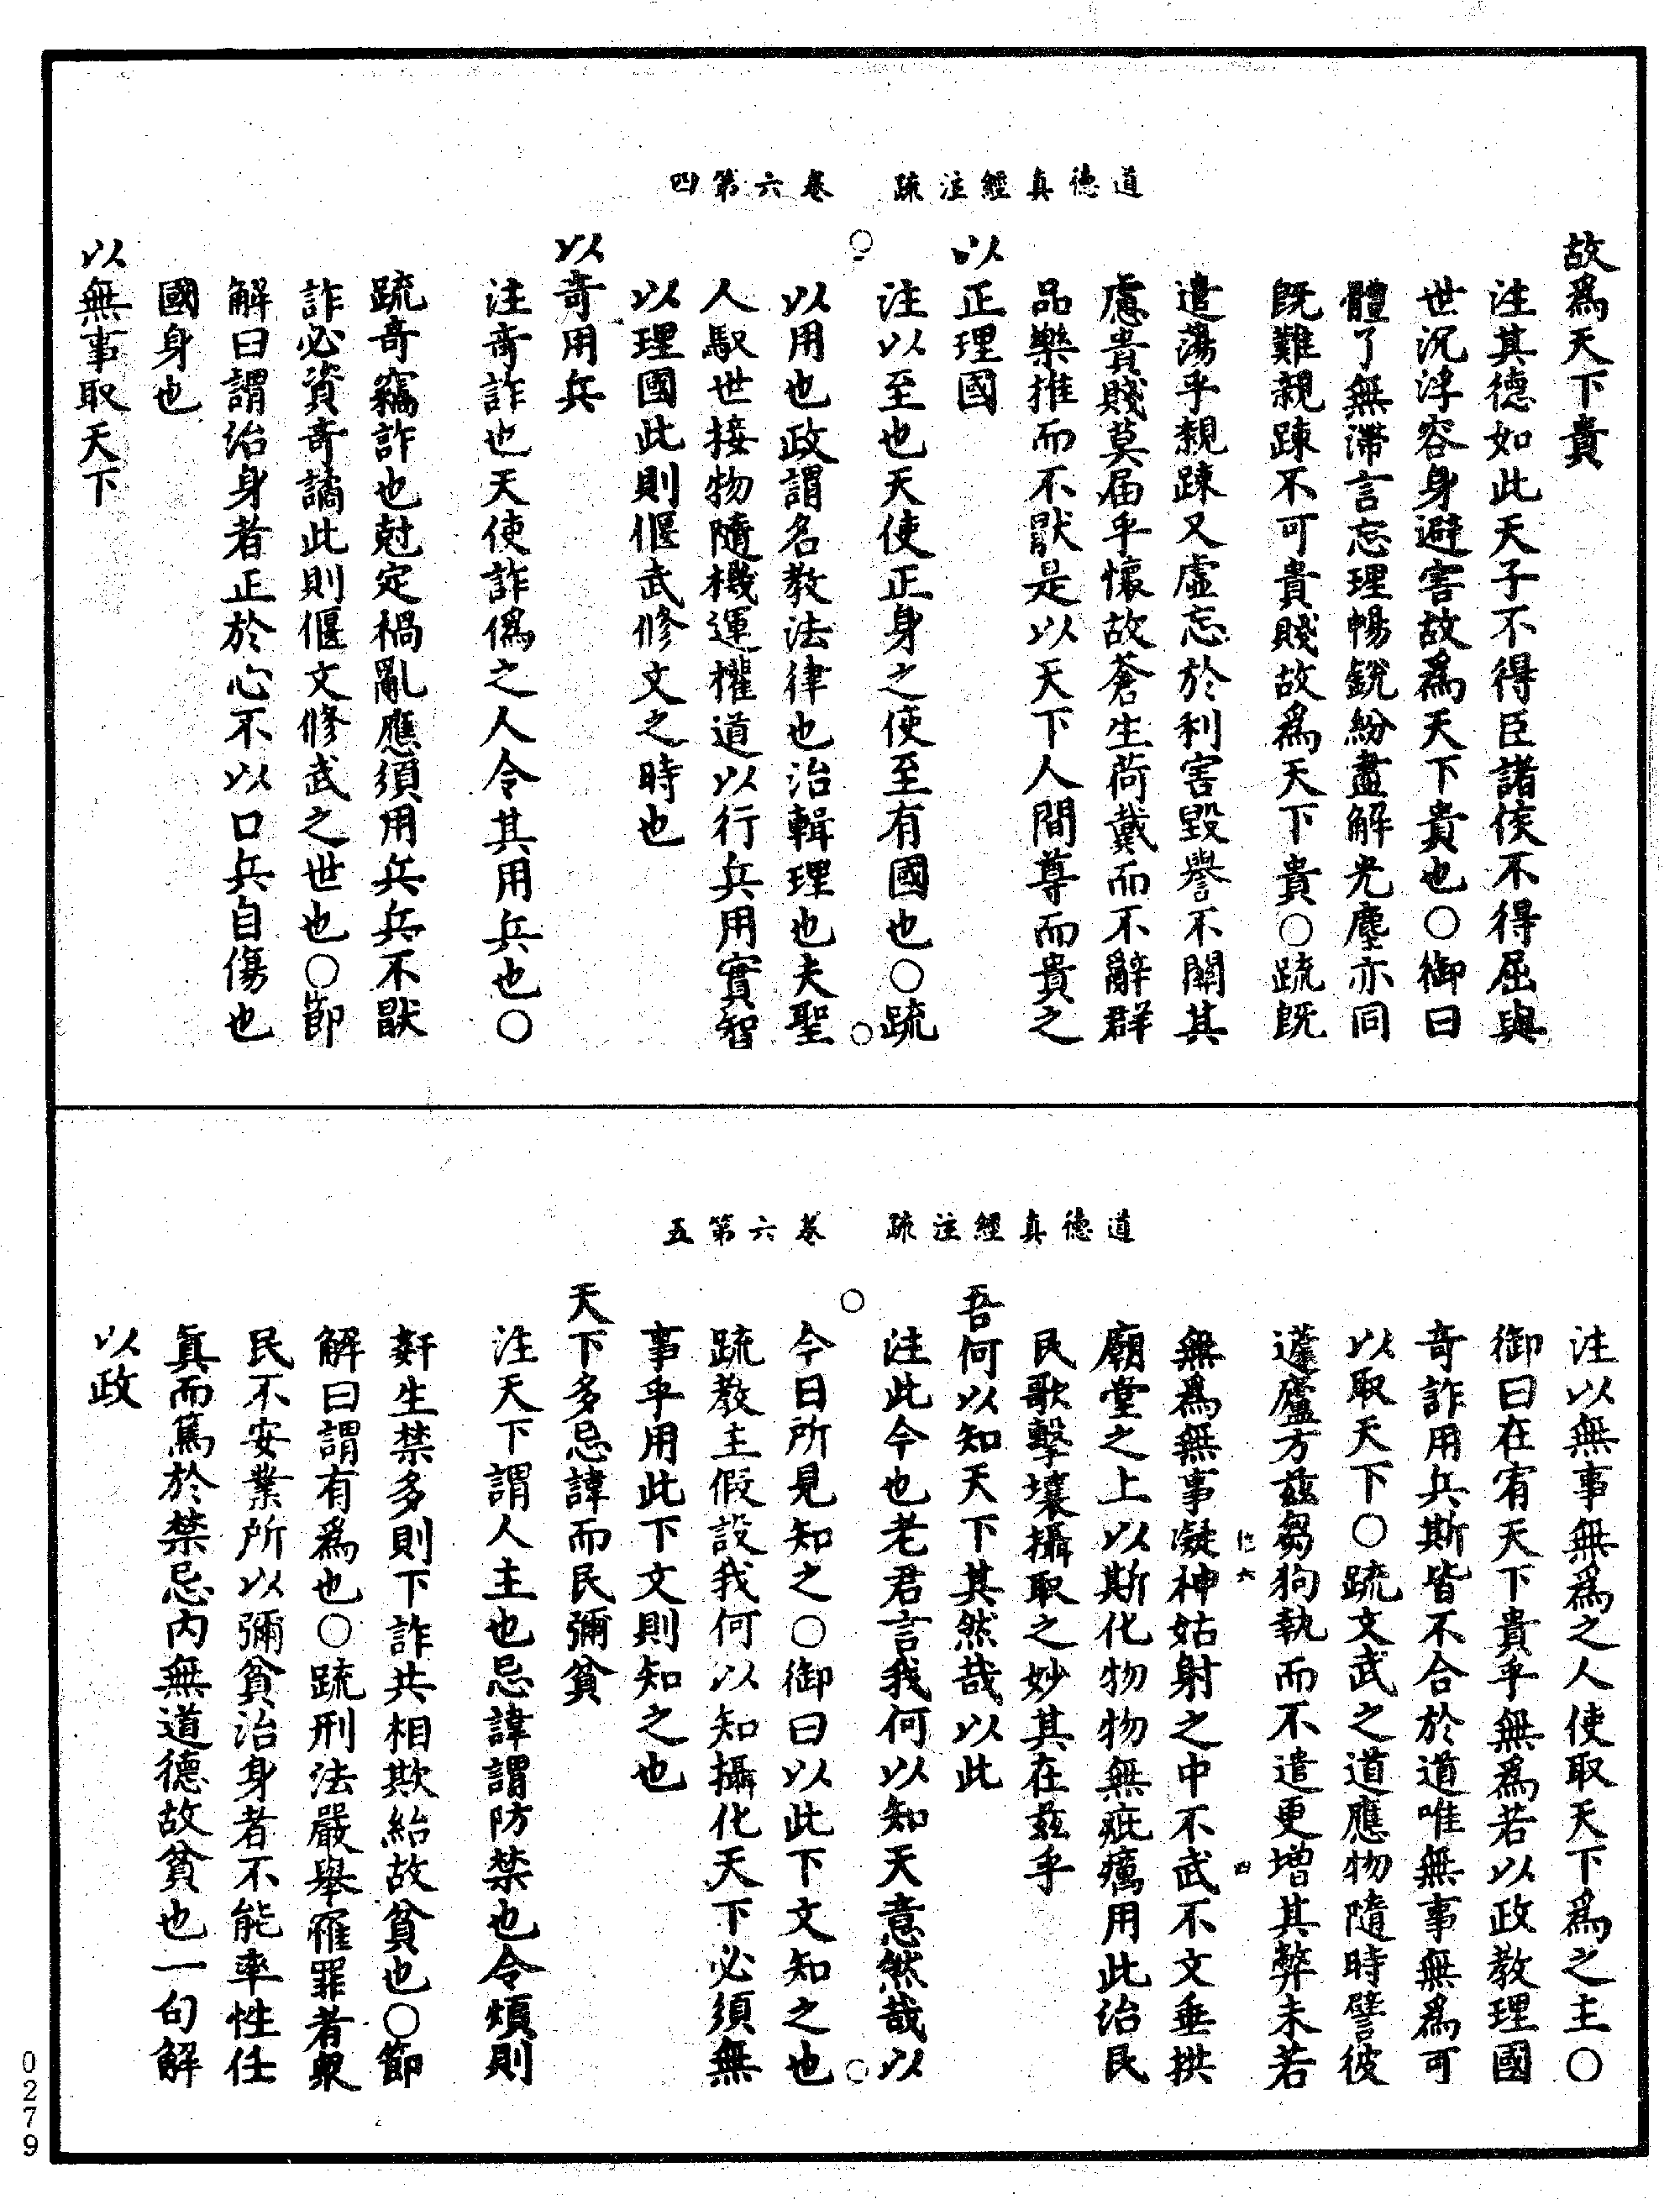 道德真經注疏　卷六第四
故爲天下貴
注其德如此天子不得臣諸侯不得屈與
世沉浮容身避害故爲天下貴也○御曰
體了無滯言忘理暢銳紛盡解光塵亦同
旣難親踈不可貴賤故爲天下貴○疏旣
遣蕩乎親踈又虛忘於利害毀譽不關其
慮貴賤莫届乎懷故蒼生荷戴而不辭群
品樂推而不猒是以天下人間尊而貴之
以正理國
注以至也天使正身之使至有國也○疏
以用也政謂名教法律也治輯理也夫聖
人馭世接物隨機運權道以行兵用實智
以理國此則偃武修文之時也
以奇用兵
注奇詐也天使詐僞之人令其用兵也○
疏奇竊詐也尅定禍亂應須用兵兵不猒
詐必資奇譎此則偃文修武之世也○節
解曰謂治身者正於心不以口兵自傷也
國身也
以無事取天下
道德真經注疏　卷六第五
注以無事無爲之人使取天下爲之主○
御曰在宥天下貴乎無爲若以政教理國
奇詐用兵斯皆不合於道唯無事無爲可
以取天下○疏文武之道應物隨時譬彼
蘧廬方茲芻狗執而不遣更增其弊未若
無爲無事凝神姑射之中不武不文垂拱
廟堂之上以斯化物物無疵癘用此治民
民歌擊壤攝取之妙其在茲乎
吾何以知天下其然哉以此
注此今也老君言我何以知天意然哉以
今日所見知之○御曰以此下文知之也
疏教主假設我何以知攝化天下必須無
事乎用此下文則知之也
天下多忌諱而民彌貧
注天下謂人主也忌諱謂防禁也令煩則
姧生禁多則下詐共相欺紿故貧也○節
解曰謂有爲也○疏刑法嚴舉罹罪者衆
民不安業所以彌貧治身者不能率性任
真而篤於禁忌內無道德故貧也一句解
以政
0279